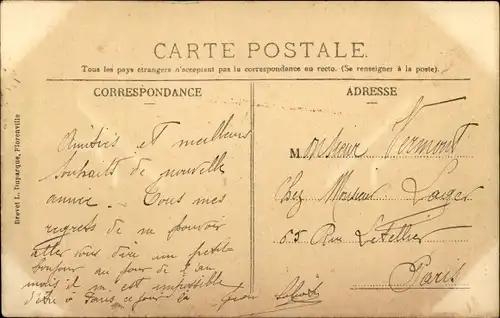 CARTE POSTALE.
Tous les pays étrangers n'acceptent pas la correspondance au recto. (Se renseigner à la poste).
CORRESPONDANCE
Amitiés et meilleurs
souhaits de nouvelle
année. Tous mes
regrets de ne pouvoir
aller vous dire un petit
bonjour au jour de l'an
mais il m'est impossible
d'être à Paris ce jour là
Brevet L. Duparque, Florenville
ADRESSE
Monsieur Vermont
Chez Monsieur Lager
85 Rue Le Tellier
Paris